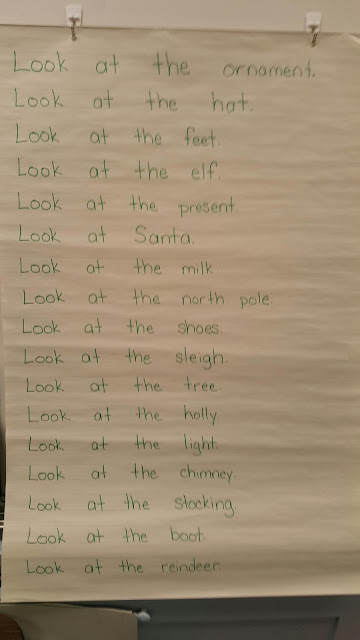 Look at the ornament.
Look at the hat.
Look at the feet.
Look at the elf.
Look at the present.
Look at Santa.
Look at the milk
Look at the north pole.
Look at the shoes.
Look at the sleigh.
Look at the tree.
Look at the holly
Look at the light.
Look at the chimney.
Look at the stocking.
Look at the boot.
Look at the reindeer.